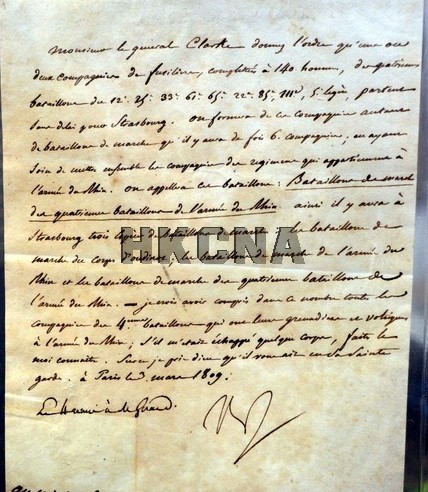 Monsieur le general Clarke donnez l'ordre qu'une ou
deux compagnies de fusiliers, complettés à 140 hommes, des quatrièmes
bataillons du 12e 25. 33. 61. 65. 22. 85. 111e, 5. legère, partent
sans délai pour Strasbourg. on formera de ces compagnies autant
de bataillons de marche qu'il y aura de fois 6. compagnies, en ayant
soin de mettre ensemble les compagnies des regimens qui appartiennent à
l'armée du Rhin. on appellera ces bataillons: Bataillons de marche
des quatrièmes bataillons de l'armée du Rhin. ainsi il y aura à
Strasbourg trois de bataillons de marche: le bataillon de
marche du corps d'oudinot, le bataillon de marche de l'armée du
Rhin et le bataillon de marche des quatrièmes bataillons de
l'armée du Rhin. - je crois avoir compris dans ce nombre toutes les
compagnies des 4emes bataillons qui ont leurs grenadiers et voltigeurs
à l'armée du Rhin; s'il m'était échappé quelque corps, faites le
moi connaitre. Sur ce je prie dieu qu'il vous ait en sa Sainte
garde. à Paris le 3 mars 1809.
HKCNA